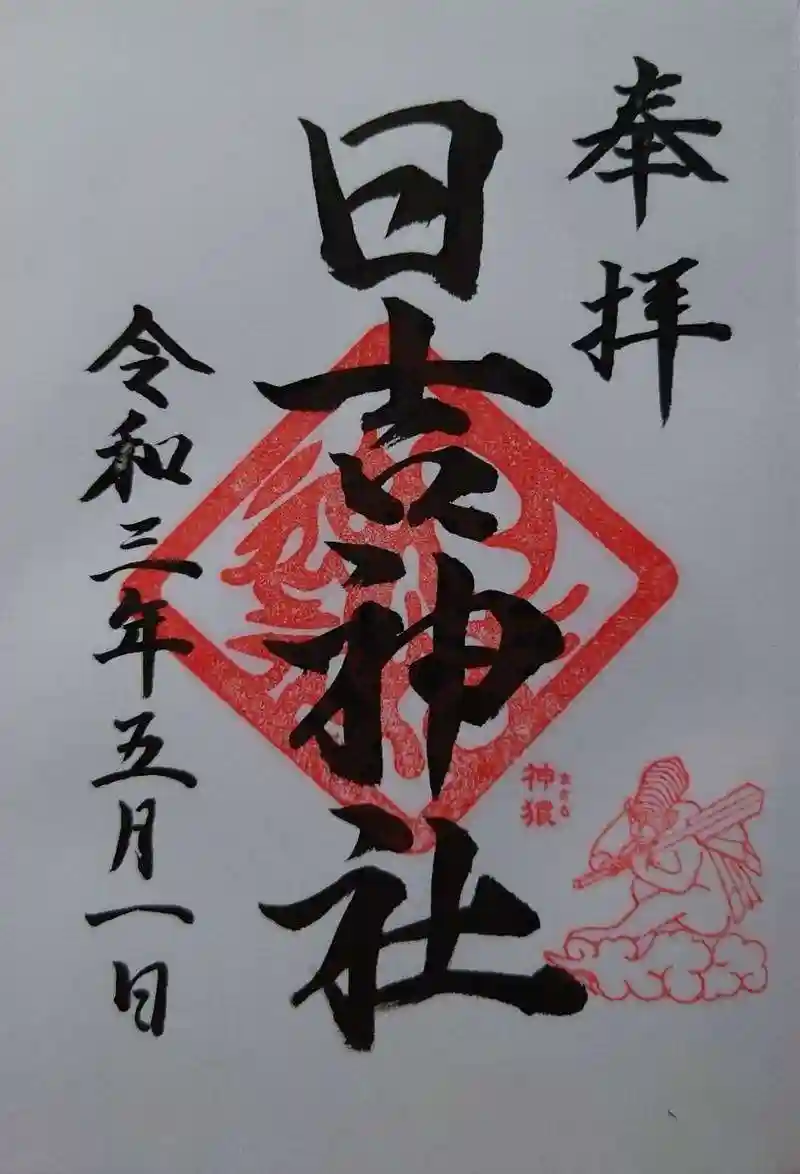 奉拝
日吉神社
神猿
まさる
令和三年五月一日